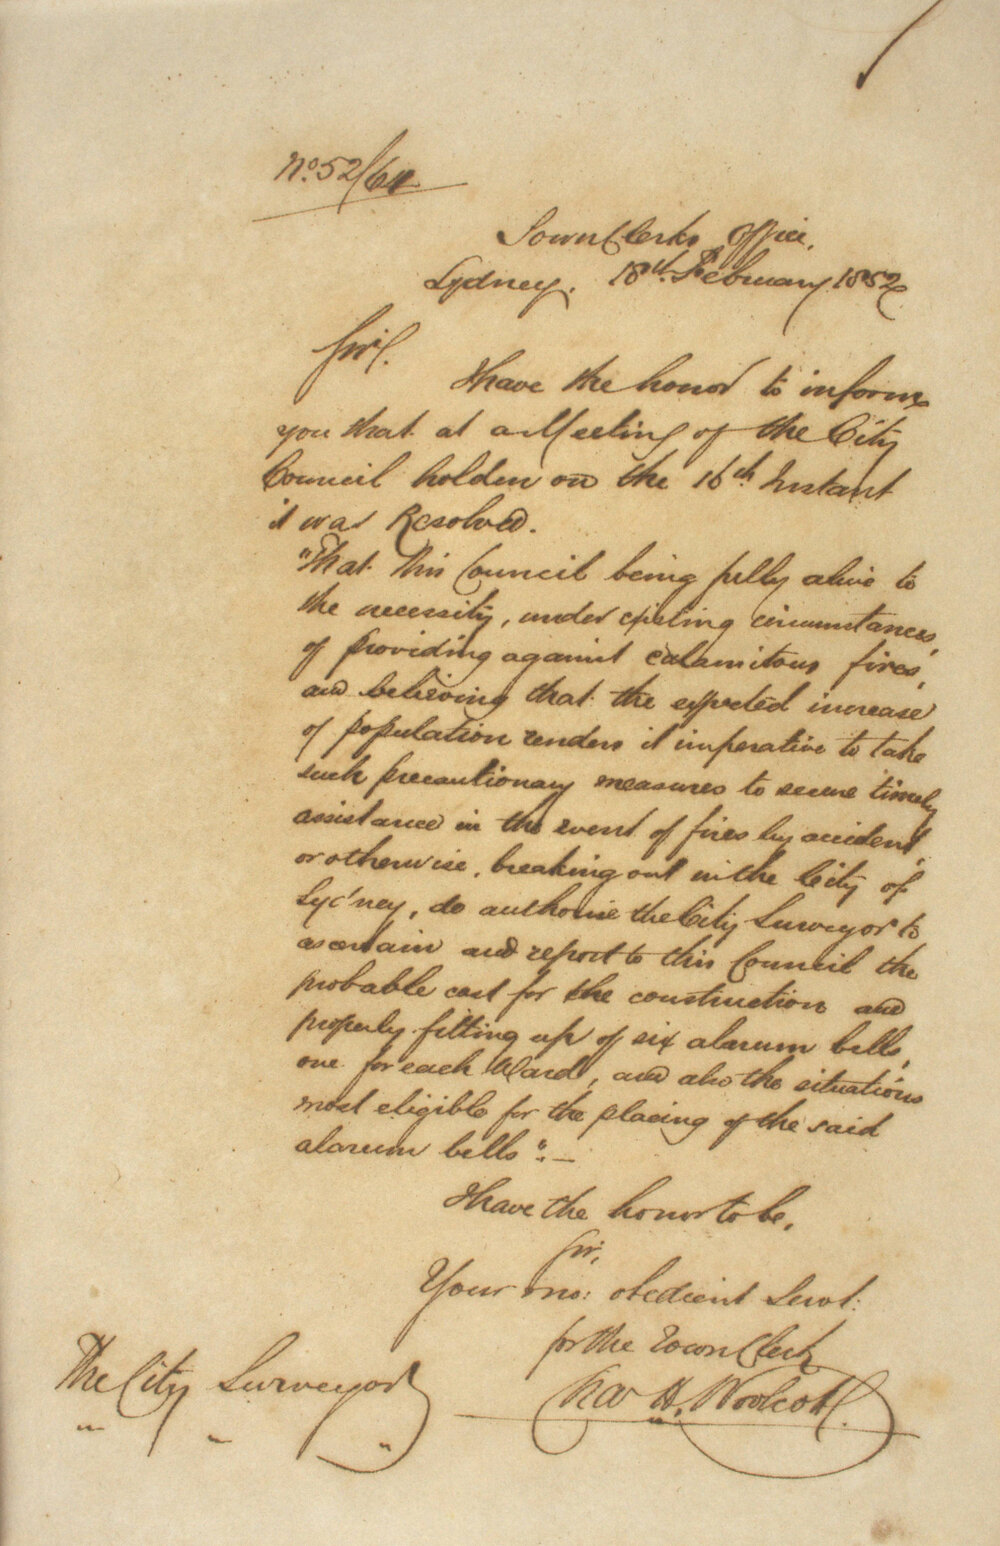 No. 52/64
Town Clerks Office,
Sydney. 18th. February 1852
Sir.
I have the honor to inform
you that at a Meeting of the City
Council holden on the 16th Instant
it was Resolved.
"That this Council being fully alive to
the necessity, under existing circumstances,
of providing against calamitous fires,
and believing that the expected increase
of population renders it imperative to take
such precautionary measures to secure timely
assistance in the event of fires by accident,
or otherwise, breaking out in the City of
Sydney, do authorise the City Surveyor to
ascertain and report to this Council the
probable cost for the construction and
properly fitting up of six alarum bells,
one for each Ward, and also the situations
most eligible for the placing of the said
alarum bells".—
I have the honor to be,
Sir,
Your mo: obedient Servt:
for the Town Clerk
H. Woolcott.
The City Surveyor
" " "